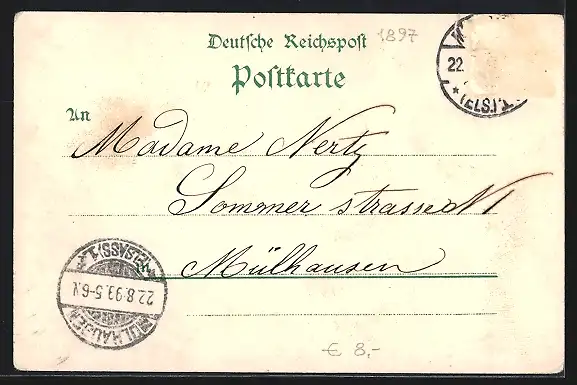 Deutsche Reichspost
1897
Postkarte
An
22.
* (ELS.)
Madame Nertz
Sommer strasse N 1
Mülhausen
(ELSASS)
22.8.99.5-6N
MÜLHAUSEN
€ 8,-